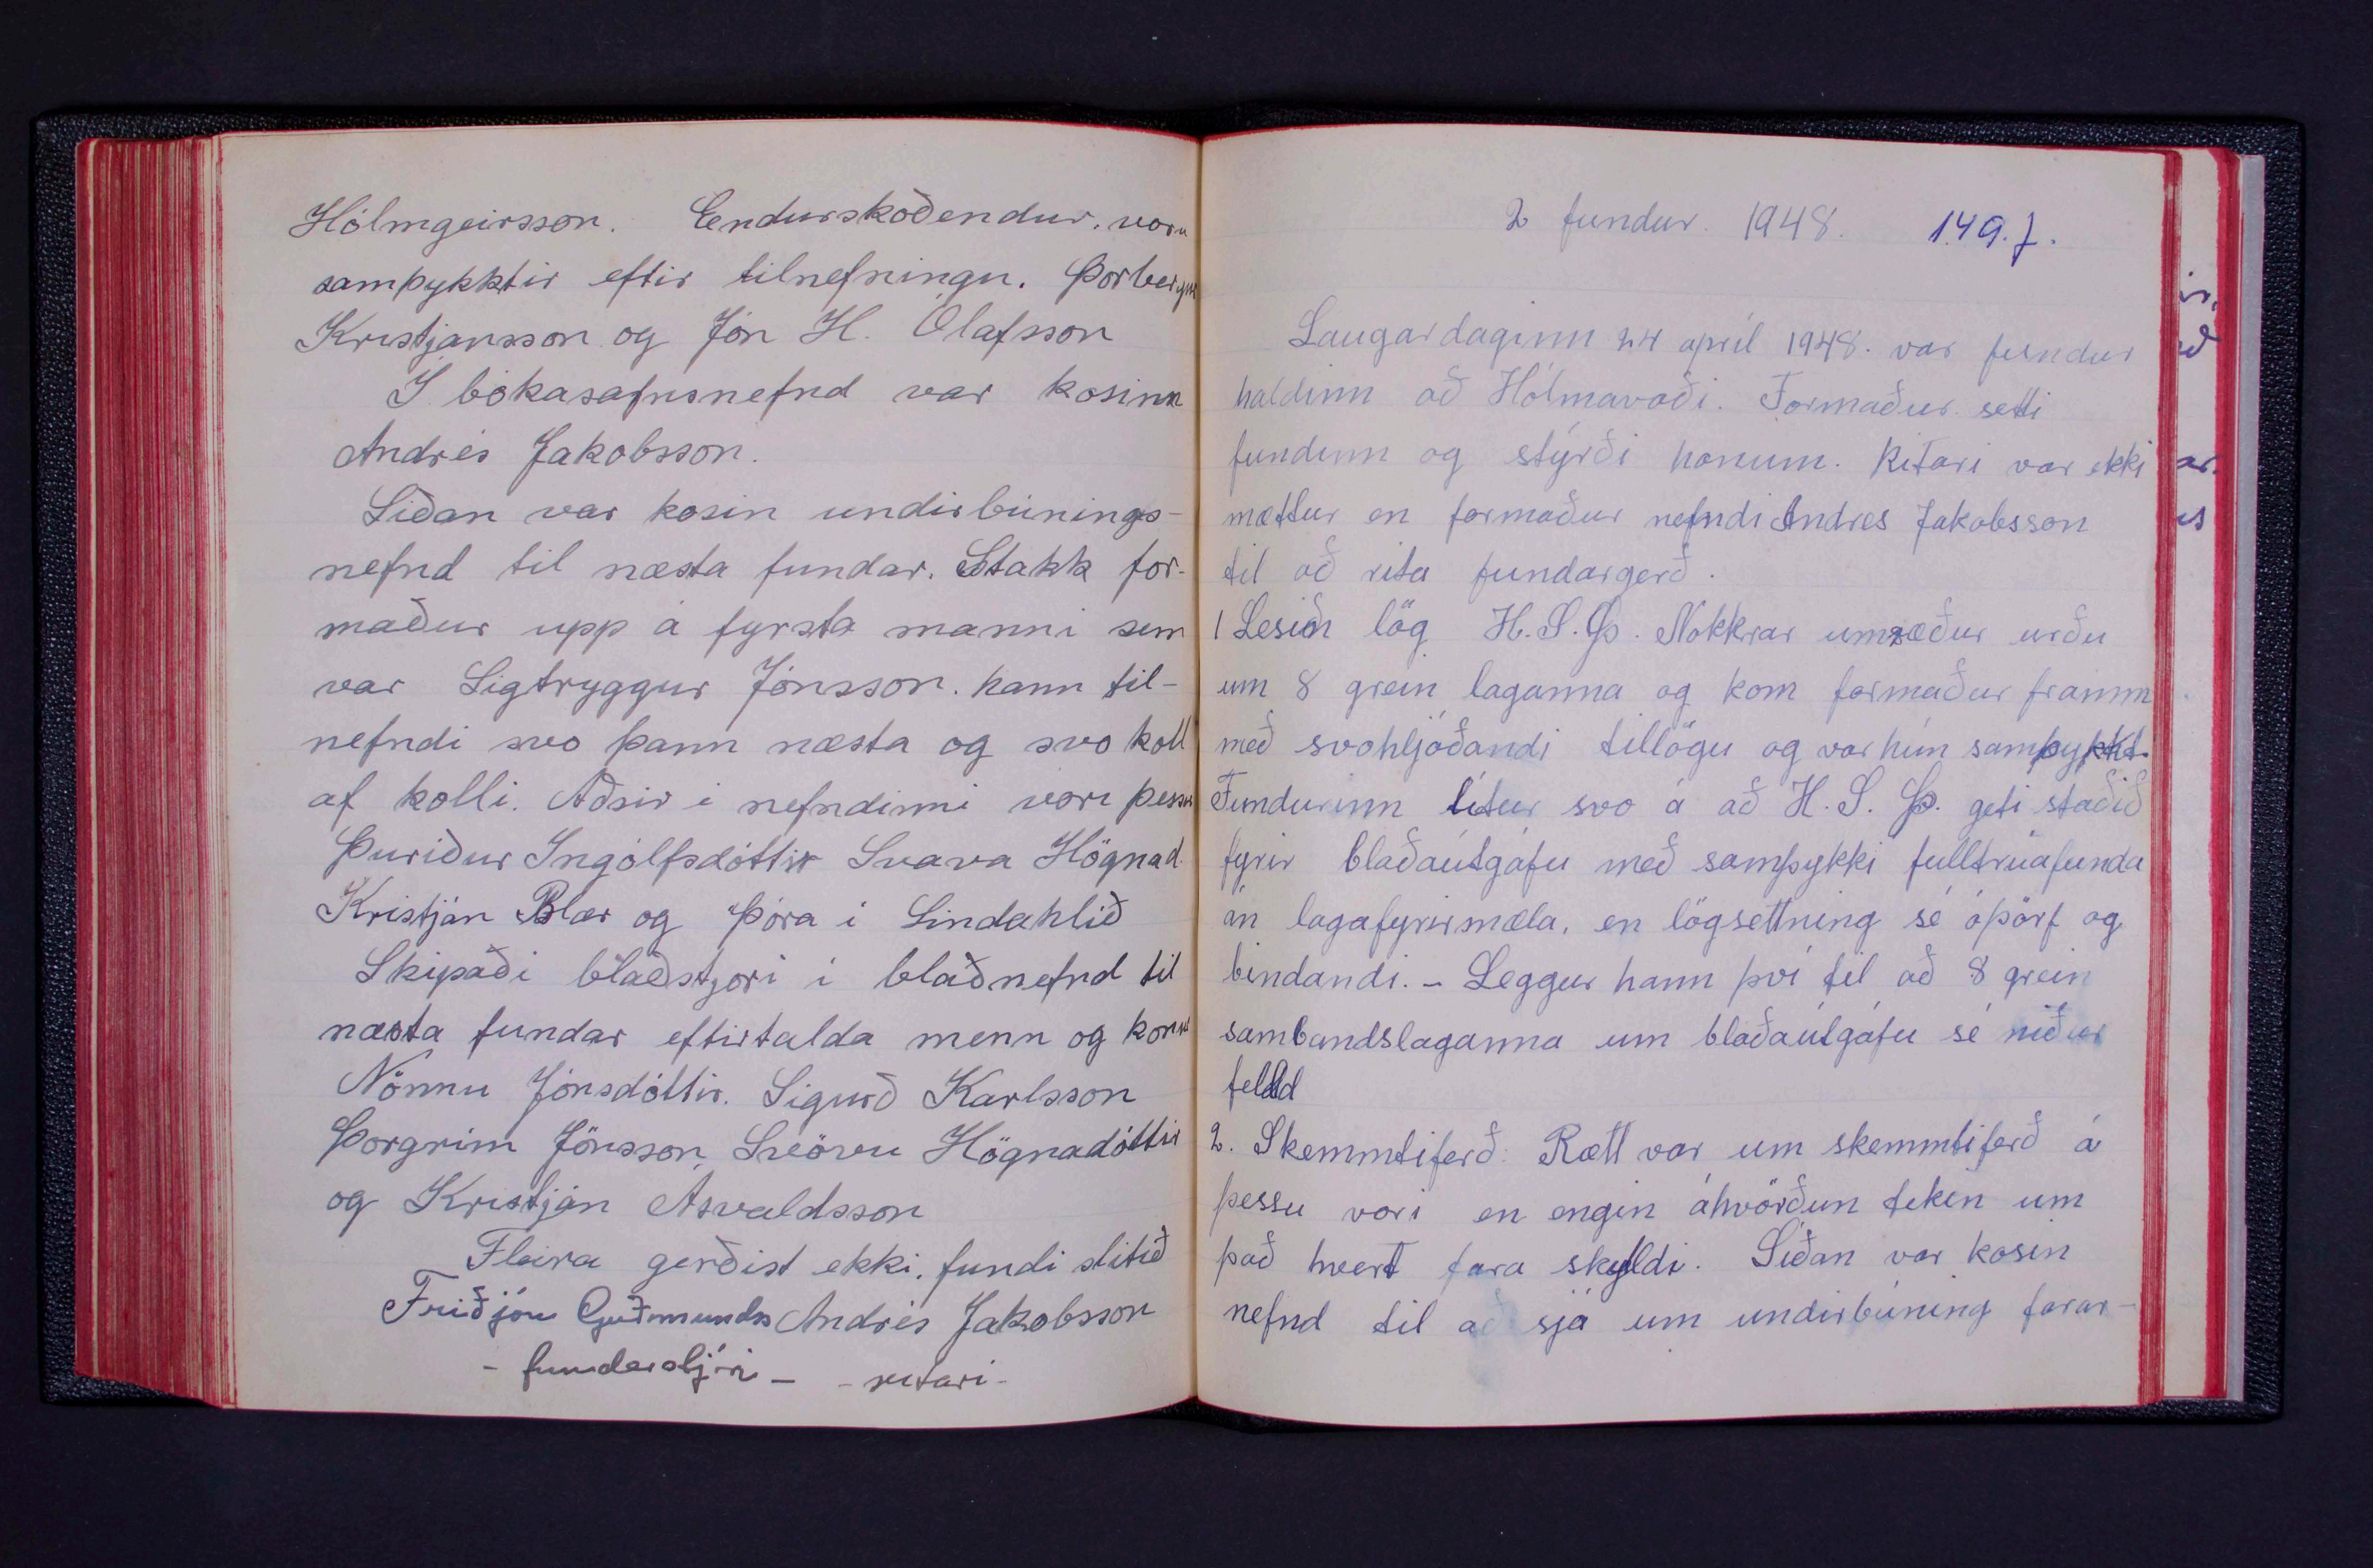 Hólmgeirsson. Endurskoðendur. voru
samþykktir eftir tilnefningu. Þorbergur
Kristjánsson og Jón H. Ólafsson
Í bókasafnsnefnd var kosinn
Andrés Jakobsson.
Síðan var kosin undirbúnings-
nefnd til næsta fundar. Stakk for-
maður upp á fyrsta manni sem
var Sigtryggur Jónsson. hann til-
nefndi svo þann næsta og svo koll
af kolli. Aðrir í nefndinni voru þessir
Þuríður Ingólfsdóttir Svava Högnad.
Kristján Blær og Þóra í Lindahlíð
Skipaði blaðstjóri í blaðnefnd til
næsta fundar eftirtalda menn og konur
Nönnu Jónsdóttir. Sigurð Karlsson
Þorgrím Jónsson, Svövu Högnadóttir
og Kristján Ásvaldsson
Fleira gerðist ekki. fundi slitið
Friðjón Guðmundss Andrés Jakobsson
- fundarstjóri - - ritari -
2 fundur. 1948. 149. f.
Laugardaginn 24 apríl 1948. var fundur
haldinn að Hólmavaði. Formaður setti
fundinn og stýrði honum. Ritari var ekki
mættur en formaður nefndi Andrés Jakobsson
til að rita fundargerð.
1 Lesin lög H.S.Þ. Nokkrar umræður urðu
um 8 grein laganna og kom formaður framm
með svohljóðandi tillögu og var hún samþykkt.
Fundurinn lítur svo á að H.S.Þ. geti staðið
fyrir blaðaútgáfu með samþykki fulltrúafunda
án lagafyrirmæla, en lögsettning sé óþörf og
bindandi. - Leggur hann því til að 8 grein
sambandslaganna um blaðaútgáfu sé niður
felld
2. Skemmtiferð: Rætt var um skemmtiferð á
þessu vori en engin áhvörðun tekin um
það hvert fara skyldi. Síðan var kosin
nefnd til að sjá um undirbúning farar-